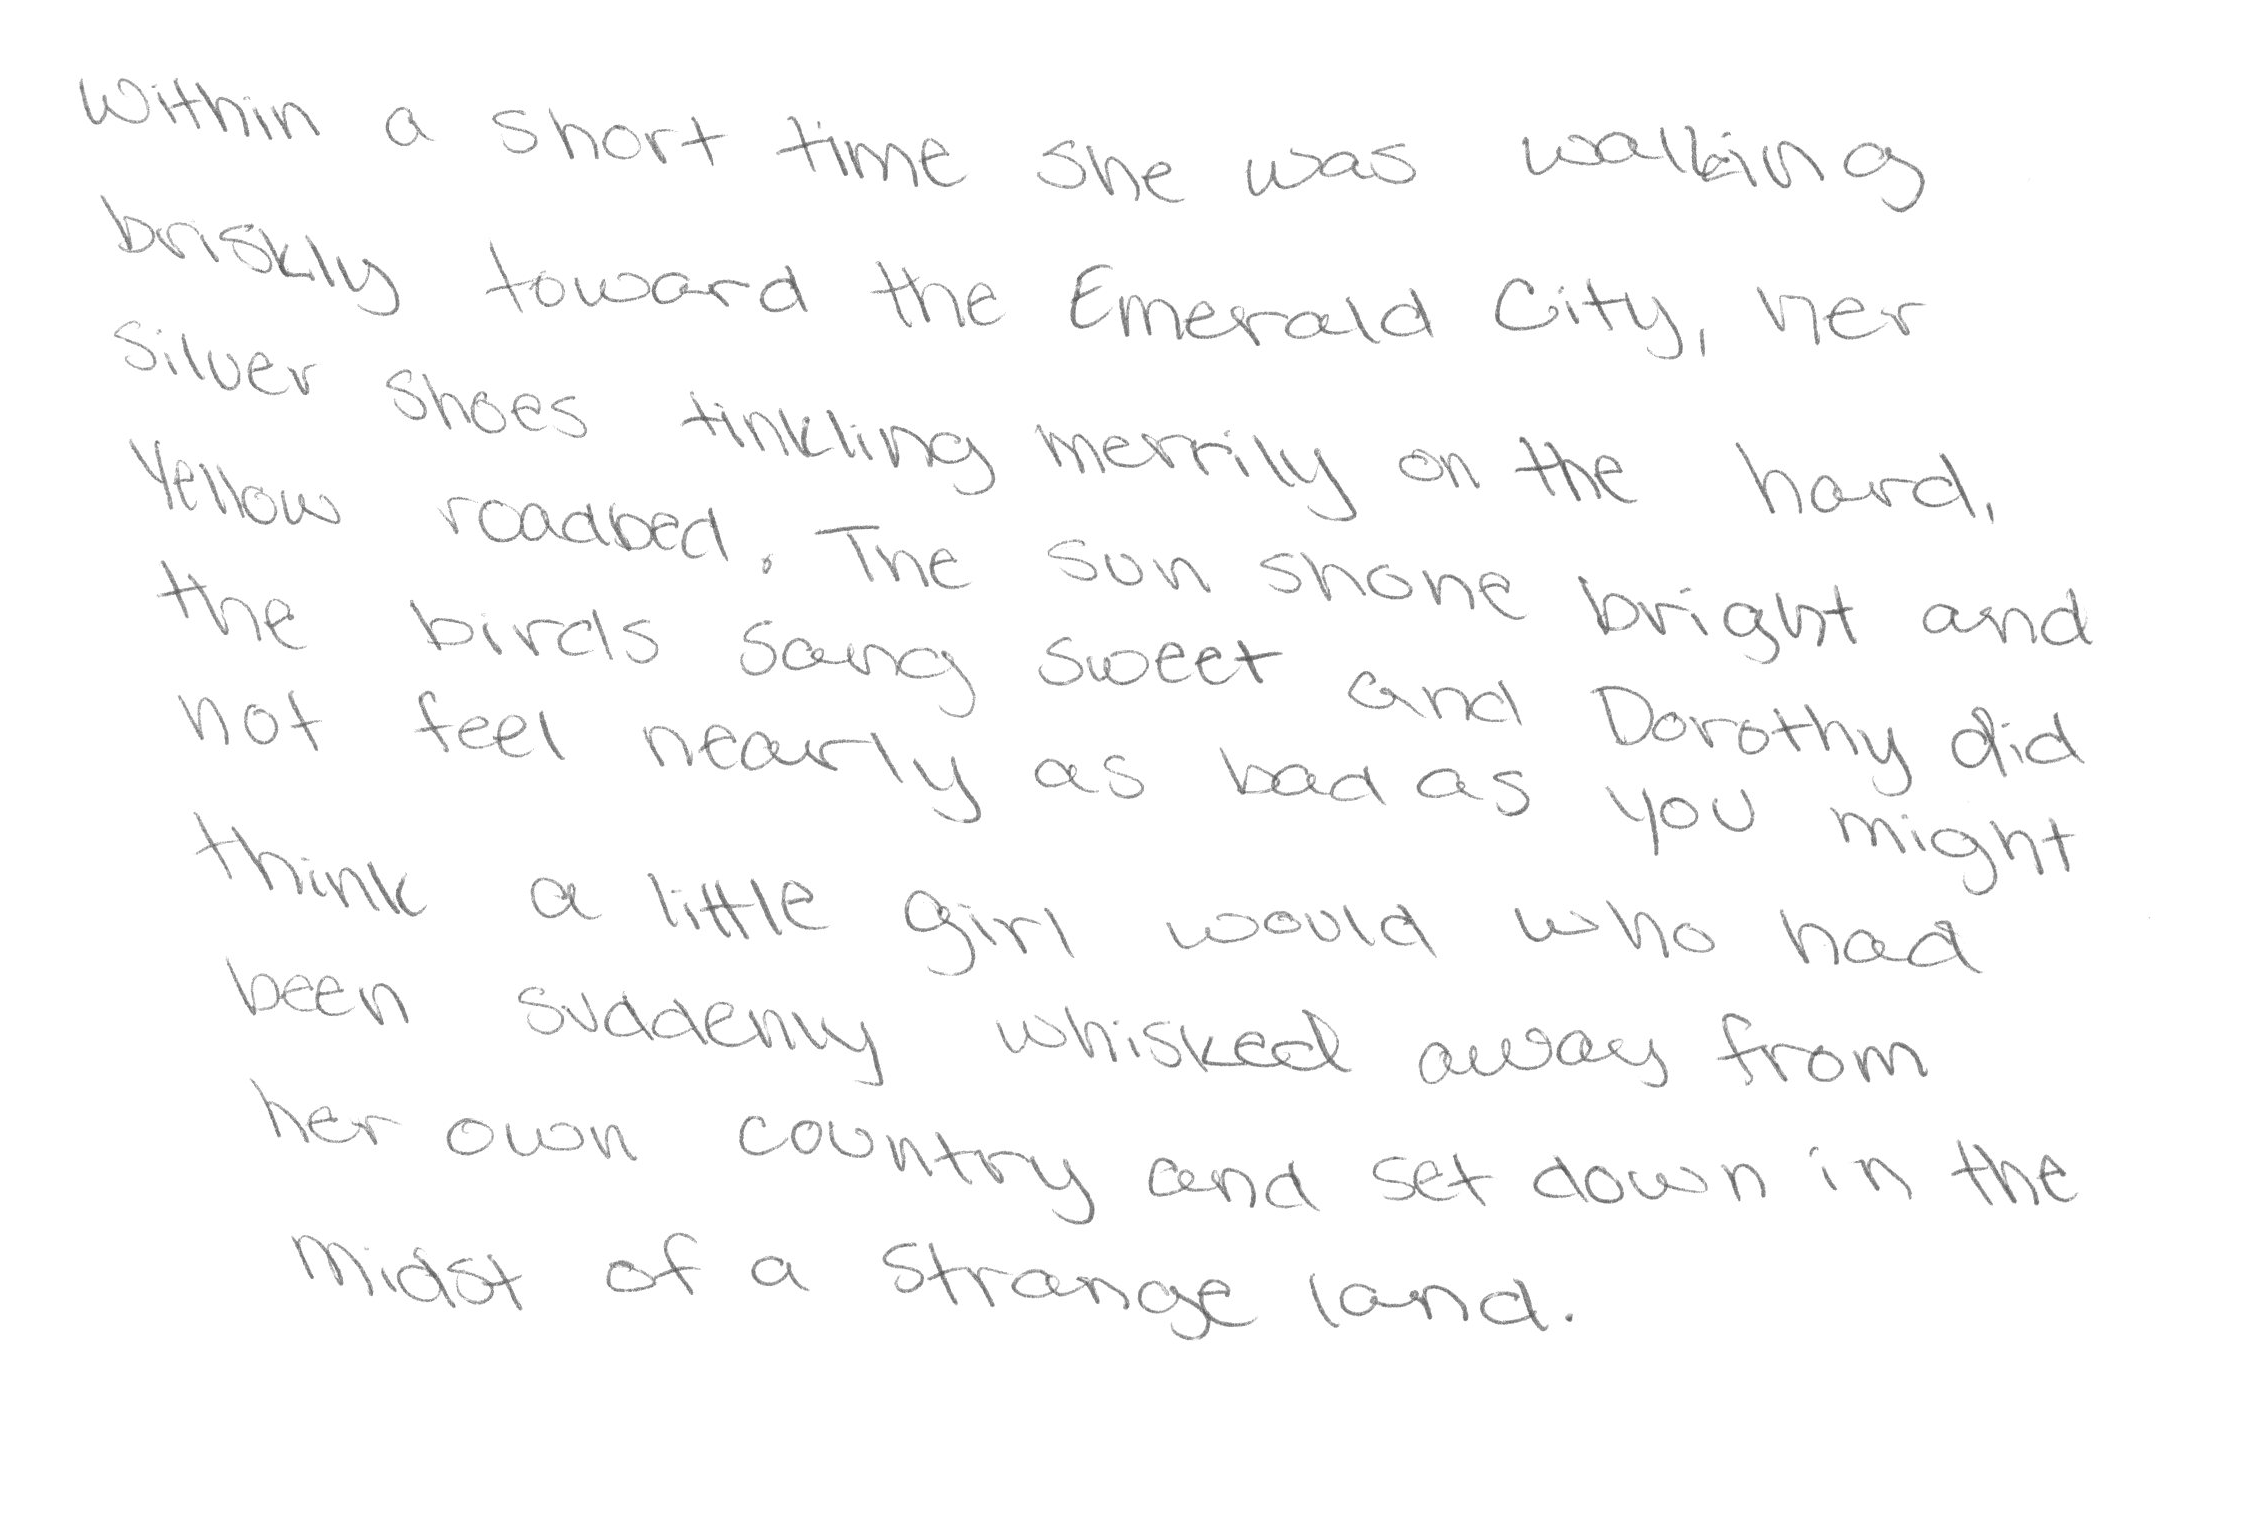 Within a short time she was walking
briskly toward the Emerald City, her
Silver Shoes tinkling merrily on the hard,
yellow roadbed. The sun shone bright and
the birds sang sweet and Dorothy did
not feel nearly as bad as you might
think a little girl would who had
been suddenly whisked away from
her own country and set down in the
midst of a strange land.